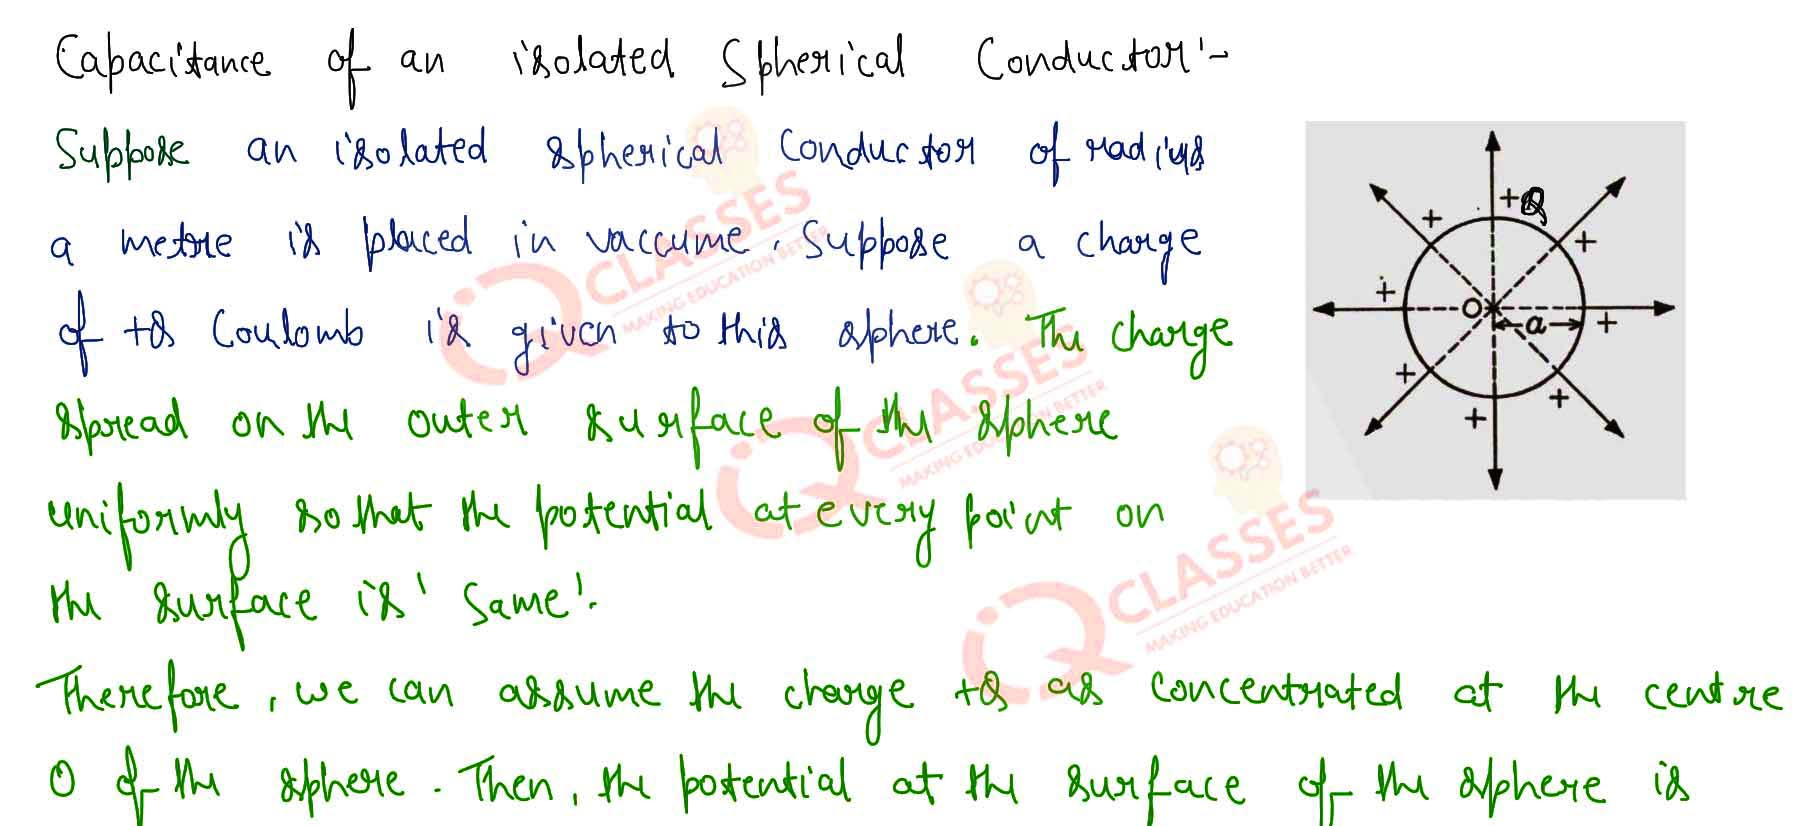 Capacitance of an isolated Spherical Conductor:-
Suppose an isolated spherical conductor of radius
a metre is placed in vaccume. Suppose a charge
of +Q Coulomb is given to this sphere. The charge
spread on the outer surface of the sphere
uniformly so that the potential at every point on
the surface is same.
Therefore, we can assume the charge +Q as concentrated at the centre
O of the sphere. Then, the potential at the surface of the sphere is
+Q
+ +
+ O a +
+ +
+
iQ CLASSES
MAKING EDUCATION BETTER
iQ CLASSES
MAKING EDUCATION BETTER
iQ CLASSES
MAKING EDUCATION BETTER